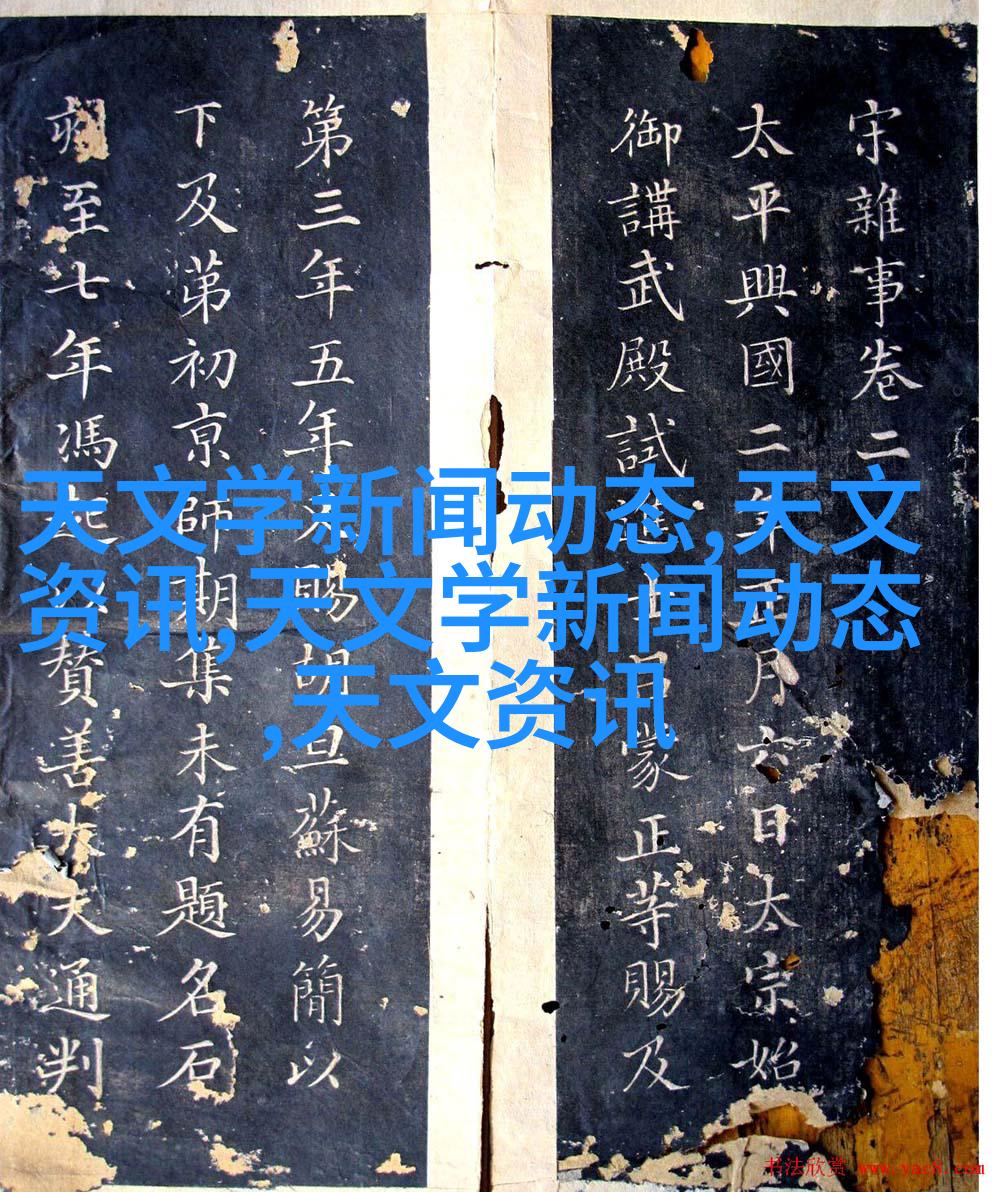 宋雜事卷二
太平興國二年正月六日太宗始
御講武殿試進士呂蒙正等賜及
第三年五年賜胡旦蘇易簡以
下及苐初亰師期集未有題名石
至七年馮贊善大夫通判
天文学新闻动态,天文
资讯,天文学新闻动态
,天文资讯
书法欣赏 www.yac8.com